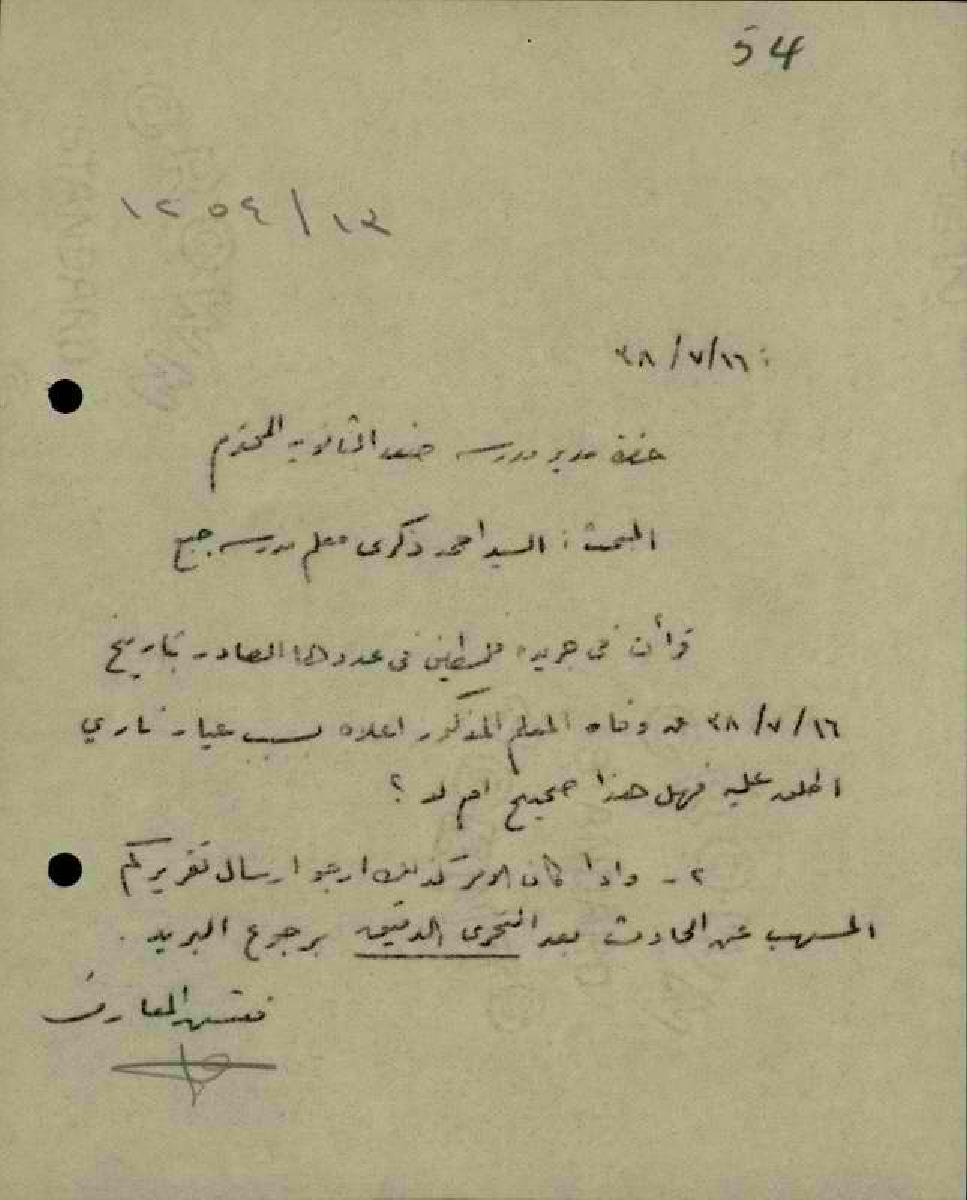 54
١٢٥٤/١٣
٣٨/٧/١٦ :
حضرة مدير مدرسة صفد الثانوية المحترم
المبحث : السيد احمد ذكرى معلم مدرسة جبع
قرأت في جريدة فلسطين في عددها الصادر بتاريخ
٣٨/٧/١٦ عن وفاه المعلم المذكور اعلاه بسبب عيار ناري
اطلق عليه فهل هذا صحيح ام لا ؟
٢- واذا كان الامر كذلك ارجو ارسال تقريركم
المسهب عن الحادث بعد التحرى الدقيق برجوع البريد .
مفتش المعارف